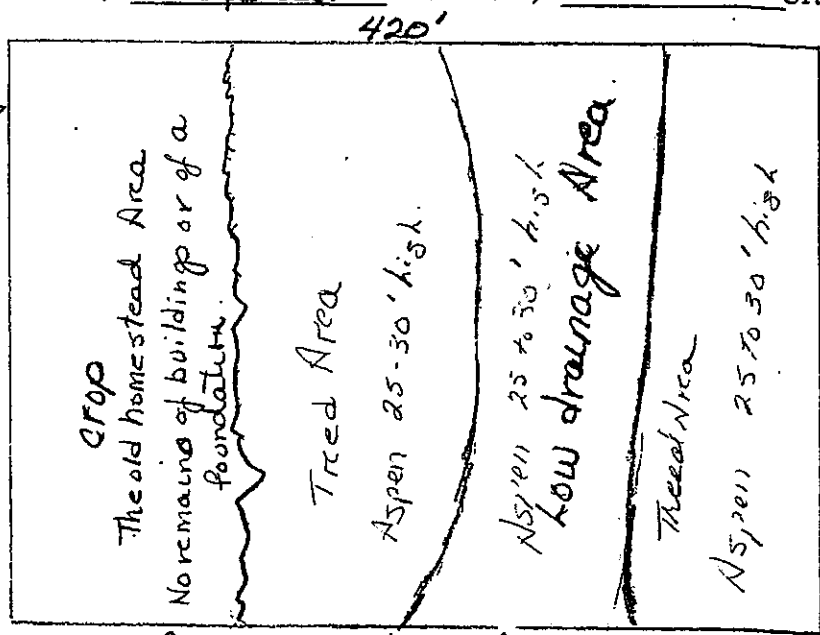 420'
Crop
The old homestead Area
No remains of buildings or of a
foundation.
Treed Area
Aspen 25-30' high.
Aspen 25 to 30' high
Low drainage Area
Treed Area
Aspen 25 to 30' high